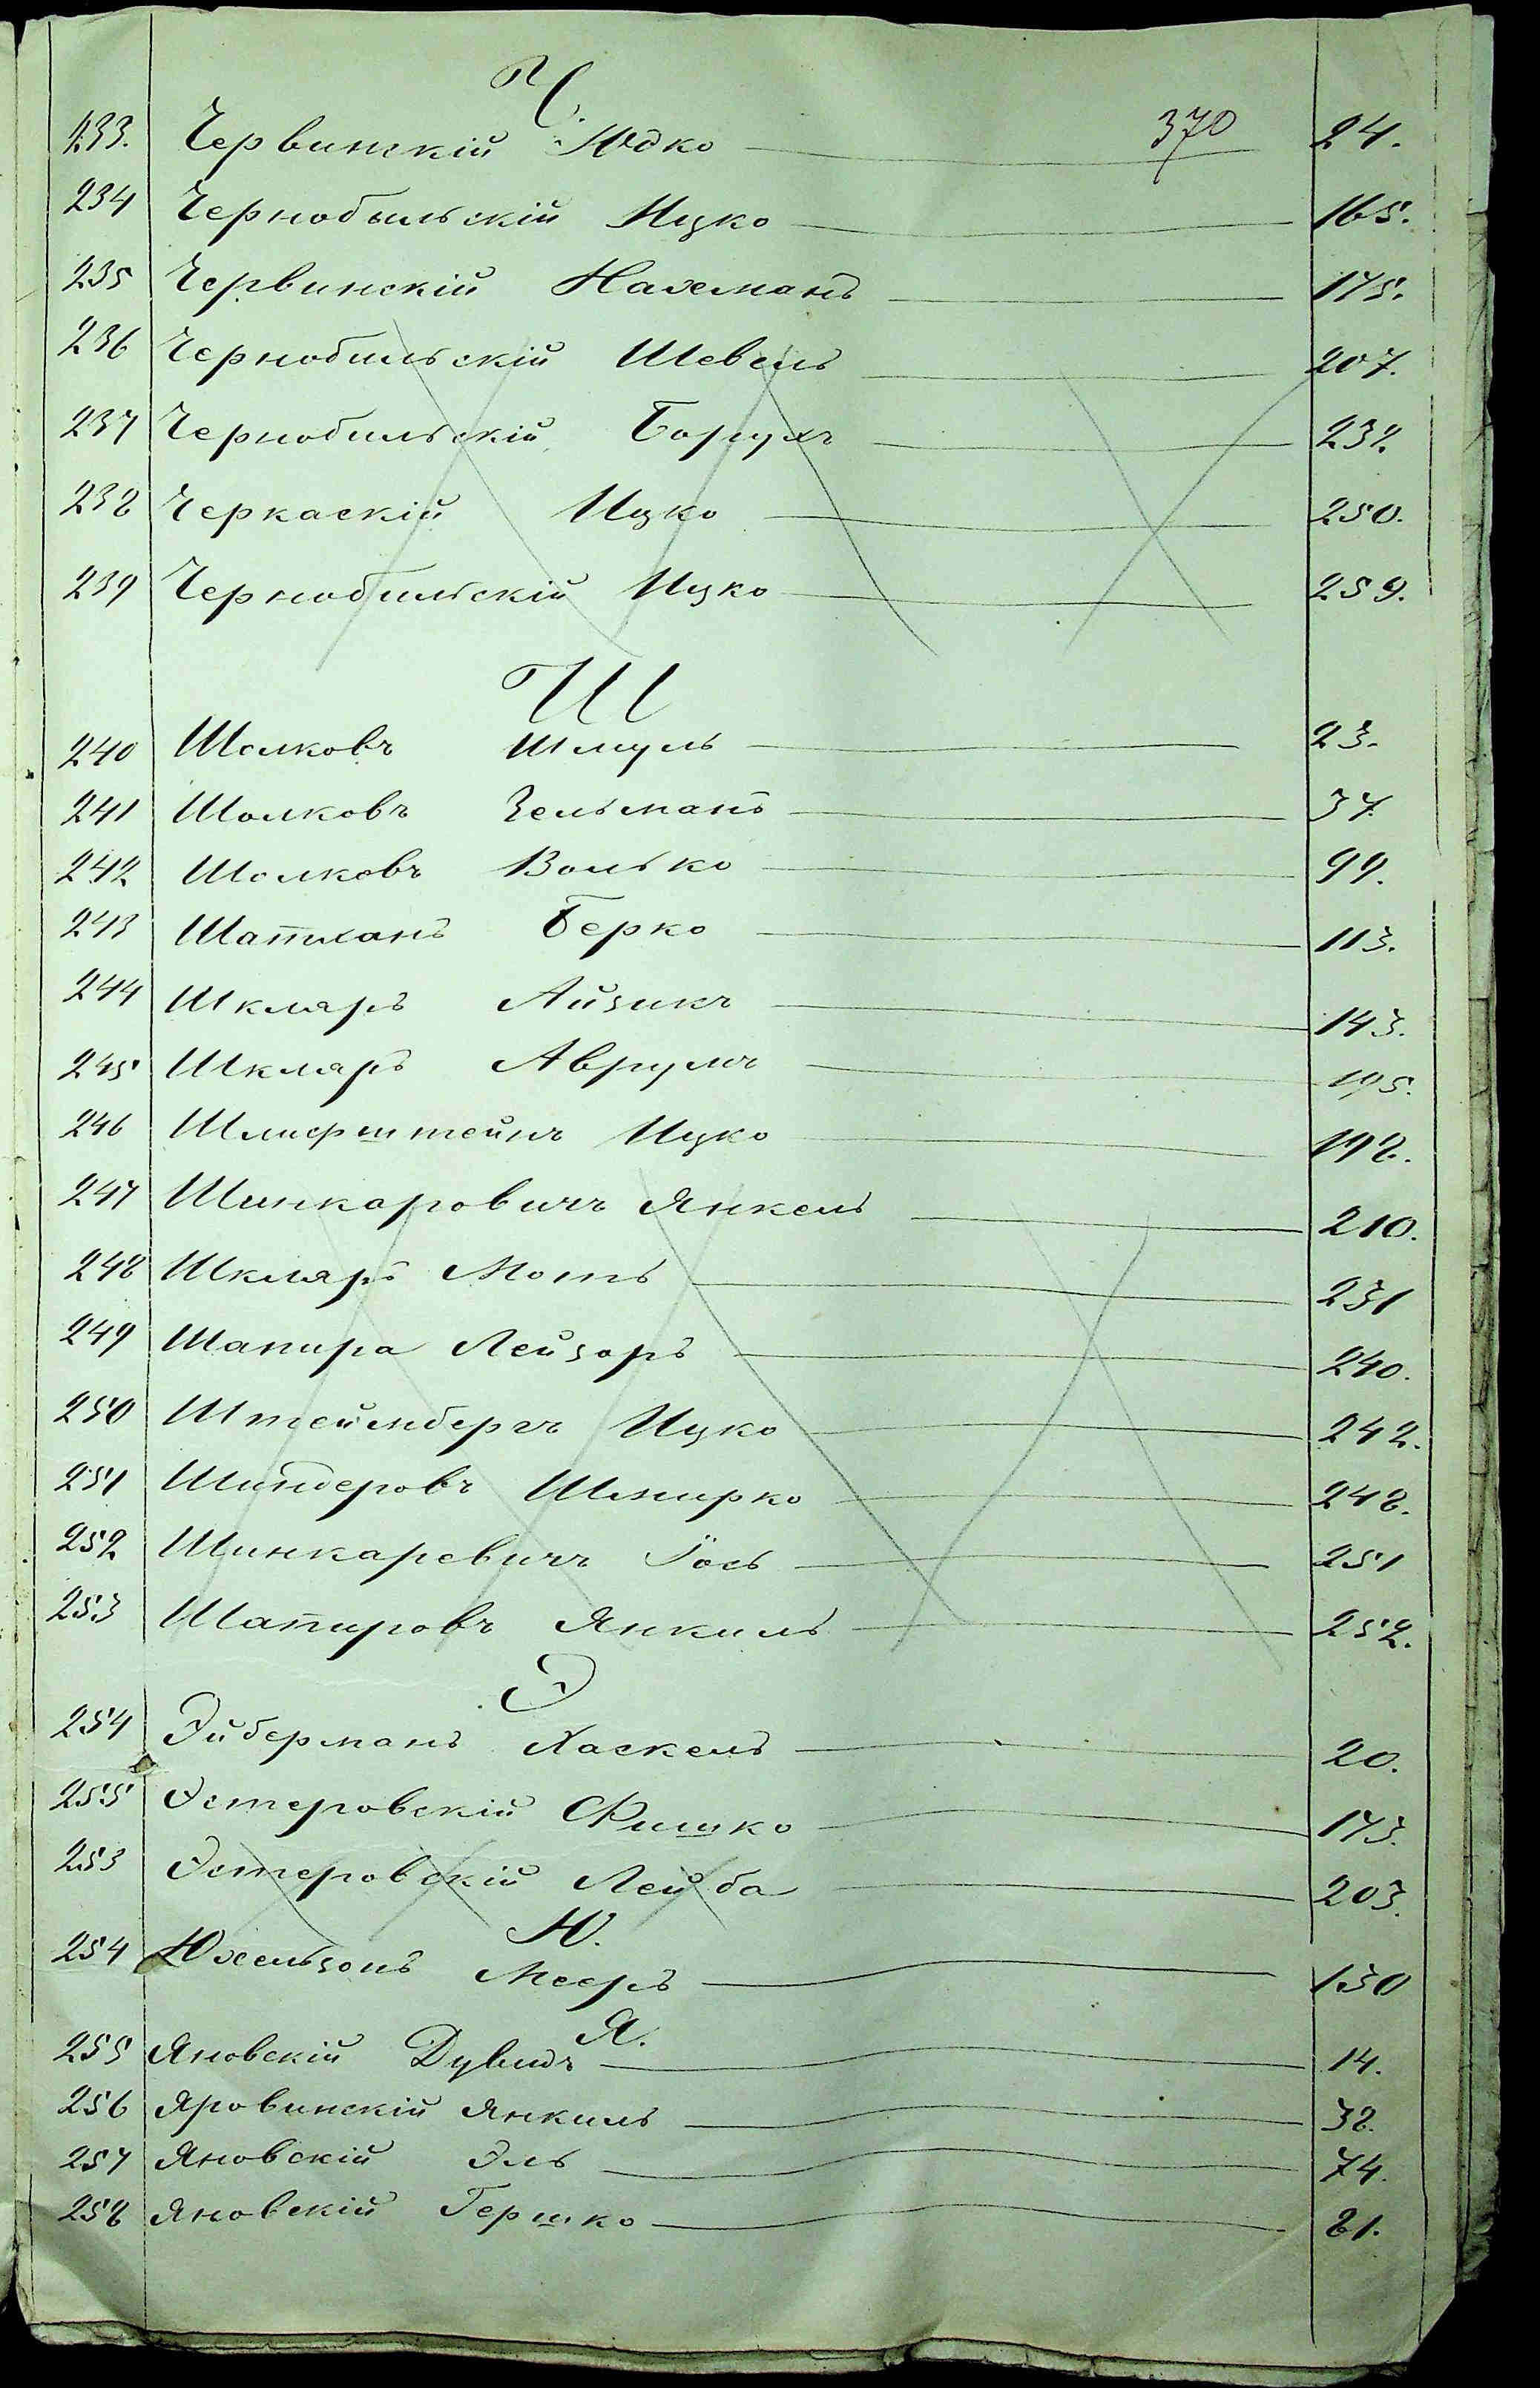 Ч.
233. Червинскій Юдко 370 24.
234 Чернобыльскій Ицко 165.
235 Червинскій Нахманъ 175.
236 Чернобильскій Шевель 207.
237 Чернобильскій Борухъ 232.
238 Черкаскій Ицко 250.
239 Чернобильскій Ицко 259.
Ш
240 Шолковъ Шмуль 23.
241 Шолковъ Зельманъ 37.
242 Шолковъ Волько 99.
243 Шатханъ Берко 113.
244 Шкляръ Айзикъ 143.
245 Шкляръ Аврумъ 195.
246 Шлифштейнъ Ицко 198.
247 Шинкаровичъ Янкель 210.
248 Шкляръ Моть 231
249 Шапира Лейзоръ 240.
250 Штеймбергъ Ицко 242.
251 Шиндеровъ Шмирко 248.
252 Шинкаревичъ Іось 251
253 Шапировъ Янкиль 252.
Э
254 Эйберманъ Хаскель 20.
255 Эстеровскій Фишко 173.
253 Эстеровскій Лейба 203.
Ю.
254 Юхельзонъ Мееръ 130
Я.
255 Яновскій Дувидъ 14.
256 Яровинскій Янкиль 38.
257 Яновскій Эль 74.
258 Яновскій Гершко 81.